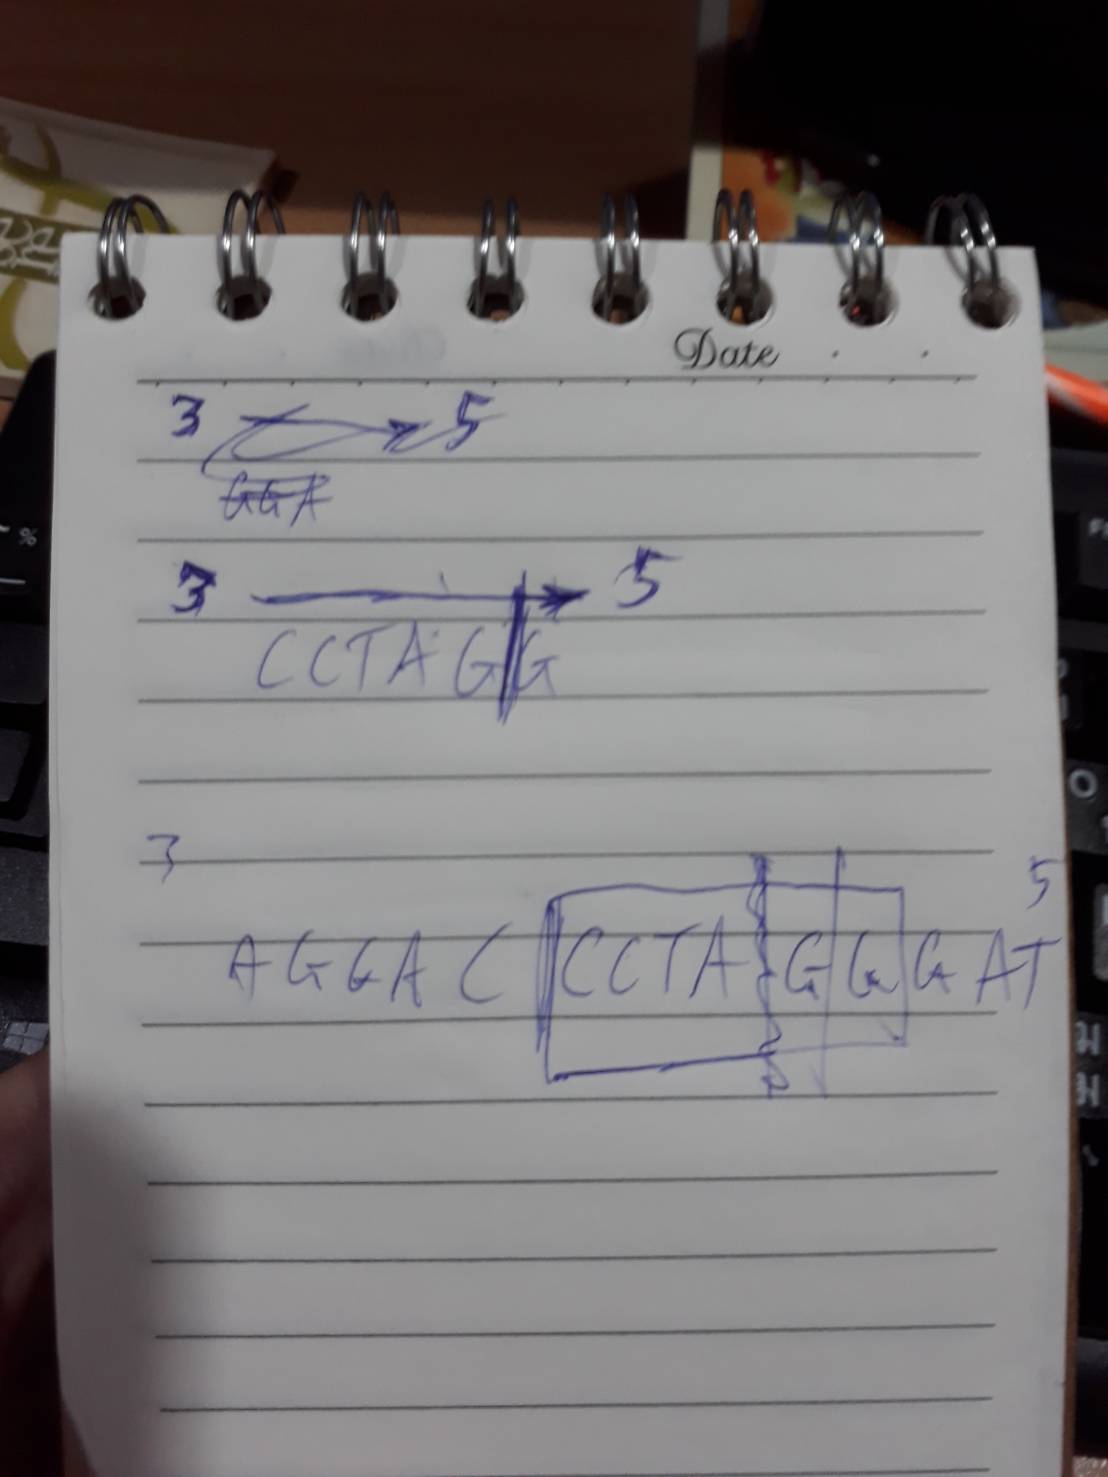 Date
3 5
GGA
3 5
CCTAGG
3 5
AGGAC CCTA GGGAT